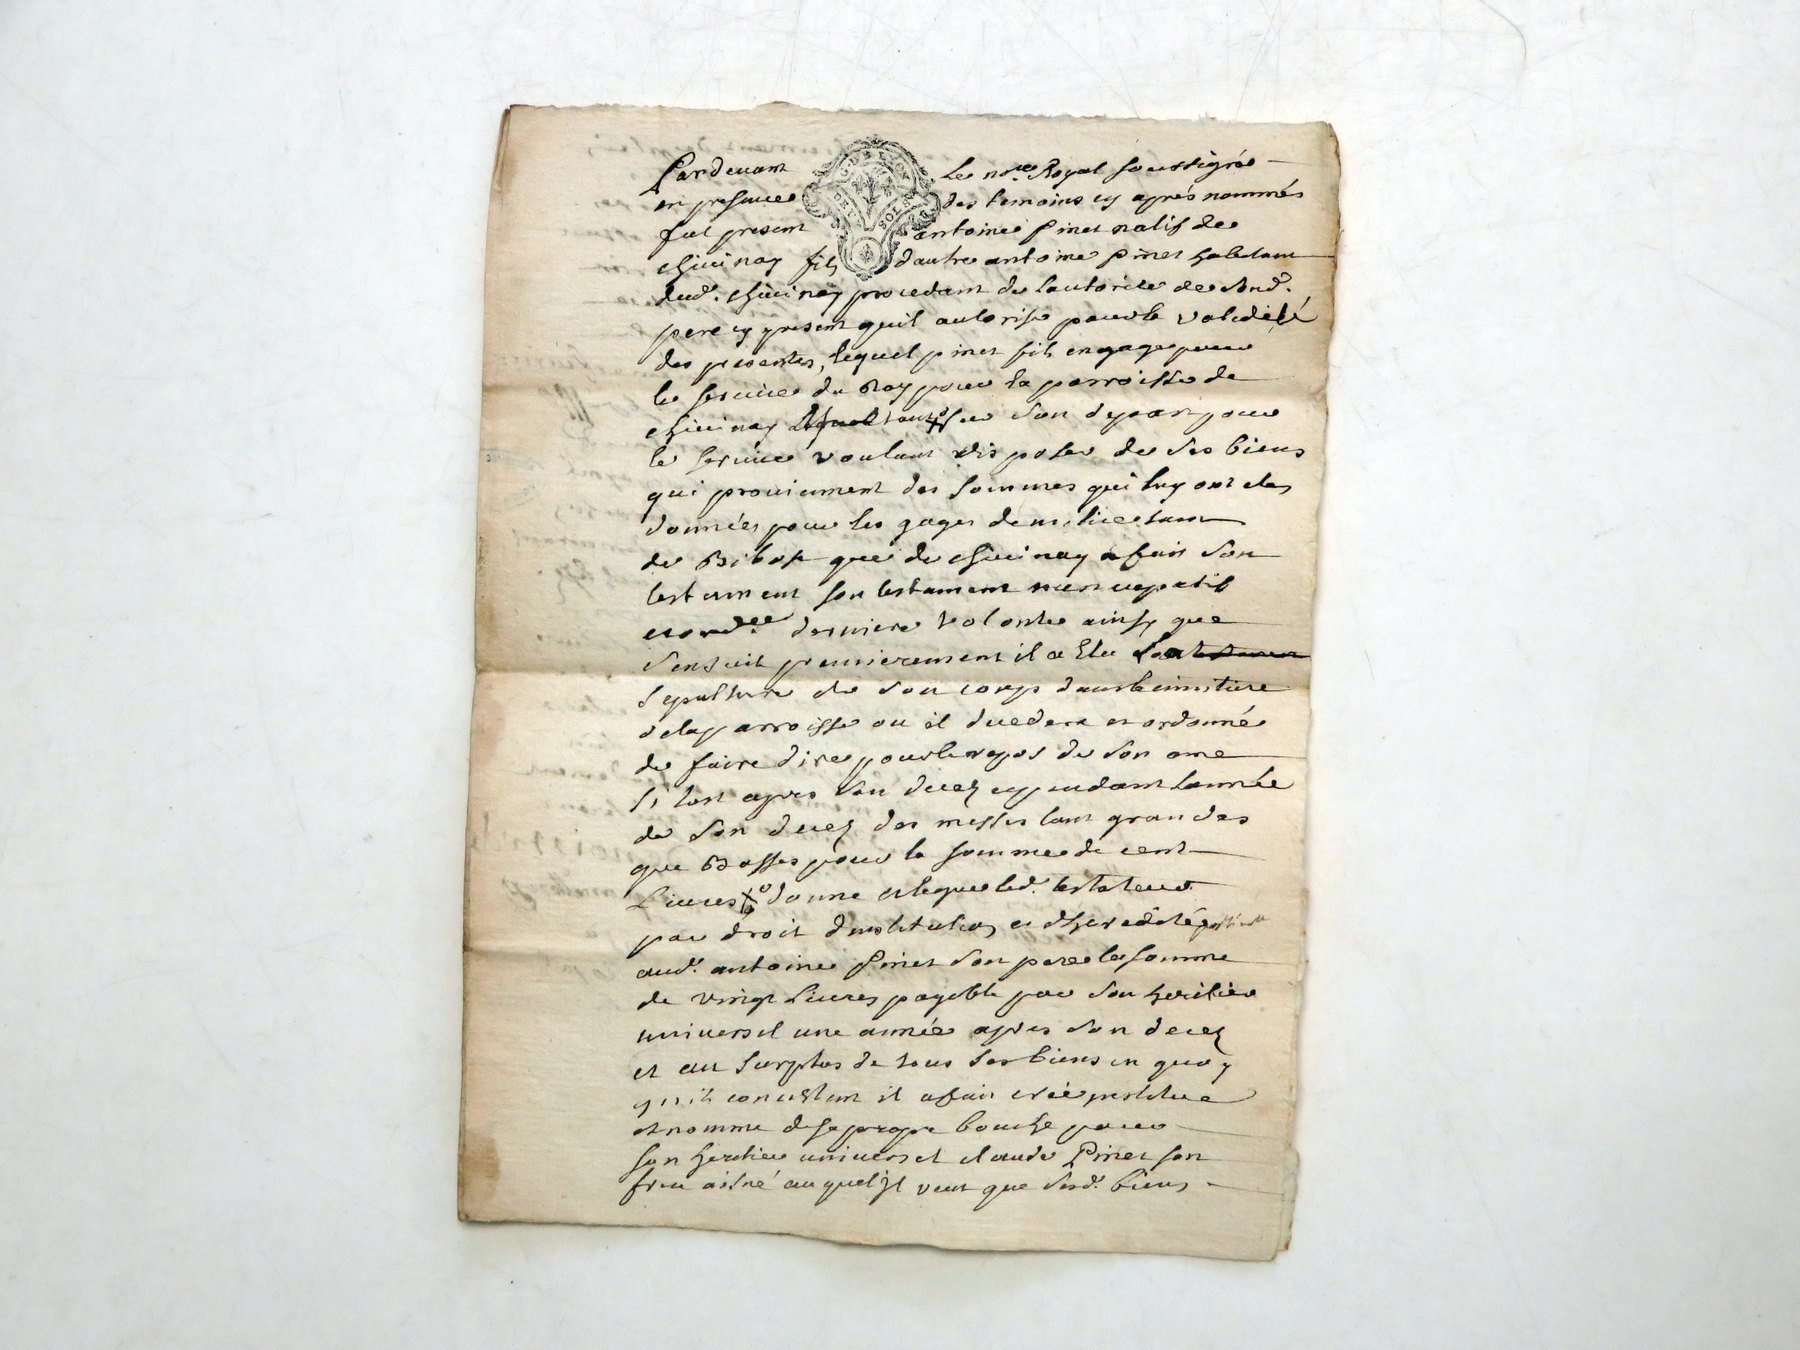 Pardevant Le no.re Royal soussigné
en presence des temoins cy aprés nommés
fut present antoine pinet natif de
chivinay fils d'autre antoine pinet habitant
dud. chivinay procedant de lautorité de sond.
pere cy present quil autorise pour la validité
des presentes, lequel pinet fils engagé pour
le service du Roy pour la parroisse de
chivinay sur son depart pour
le service voulant disposer de ses biens
qui proviennent des sommes qui luy ont etes
données pour les gages de milice tant
de que de chivinay a fait son
testament son testament nuncupatif
et ord.ce derniere volonte ainsy que
sensuit premierement il a Elu sa
sepulture de son corps dans le cimetiere
de la parroisse ou il decedera et ordonné
de faire dire pour le repos de son ame
si tost apres son decez et pendant lannée
de son decez des messes tant grandes
que Basses pour la somme de cent
Livres donne et legue led. testateur
par droit d'institution et d'heredité
aud. antoine pinet son pere la somme
de vingt Livres payable par son heritier
universel une année apres son decez
et au surplus de tous ses biens en quoy
quils consistent il a fait créé institue
et nomme de sa propre bouche pour
son heritier universel claude Pinet son
frere aisné auquel Jl veut que sesd. biens